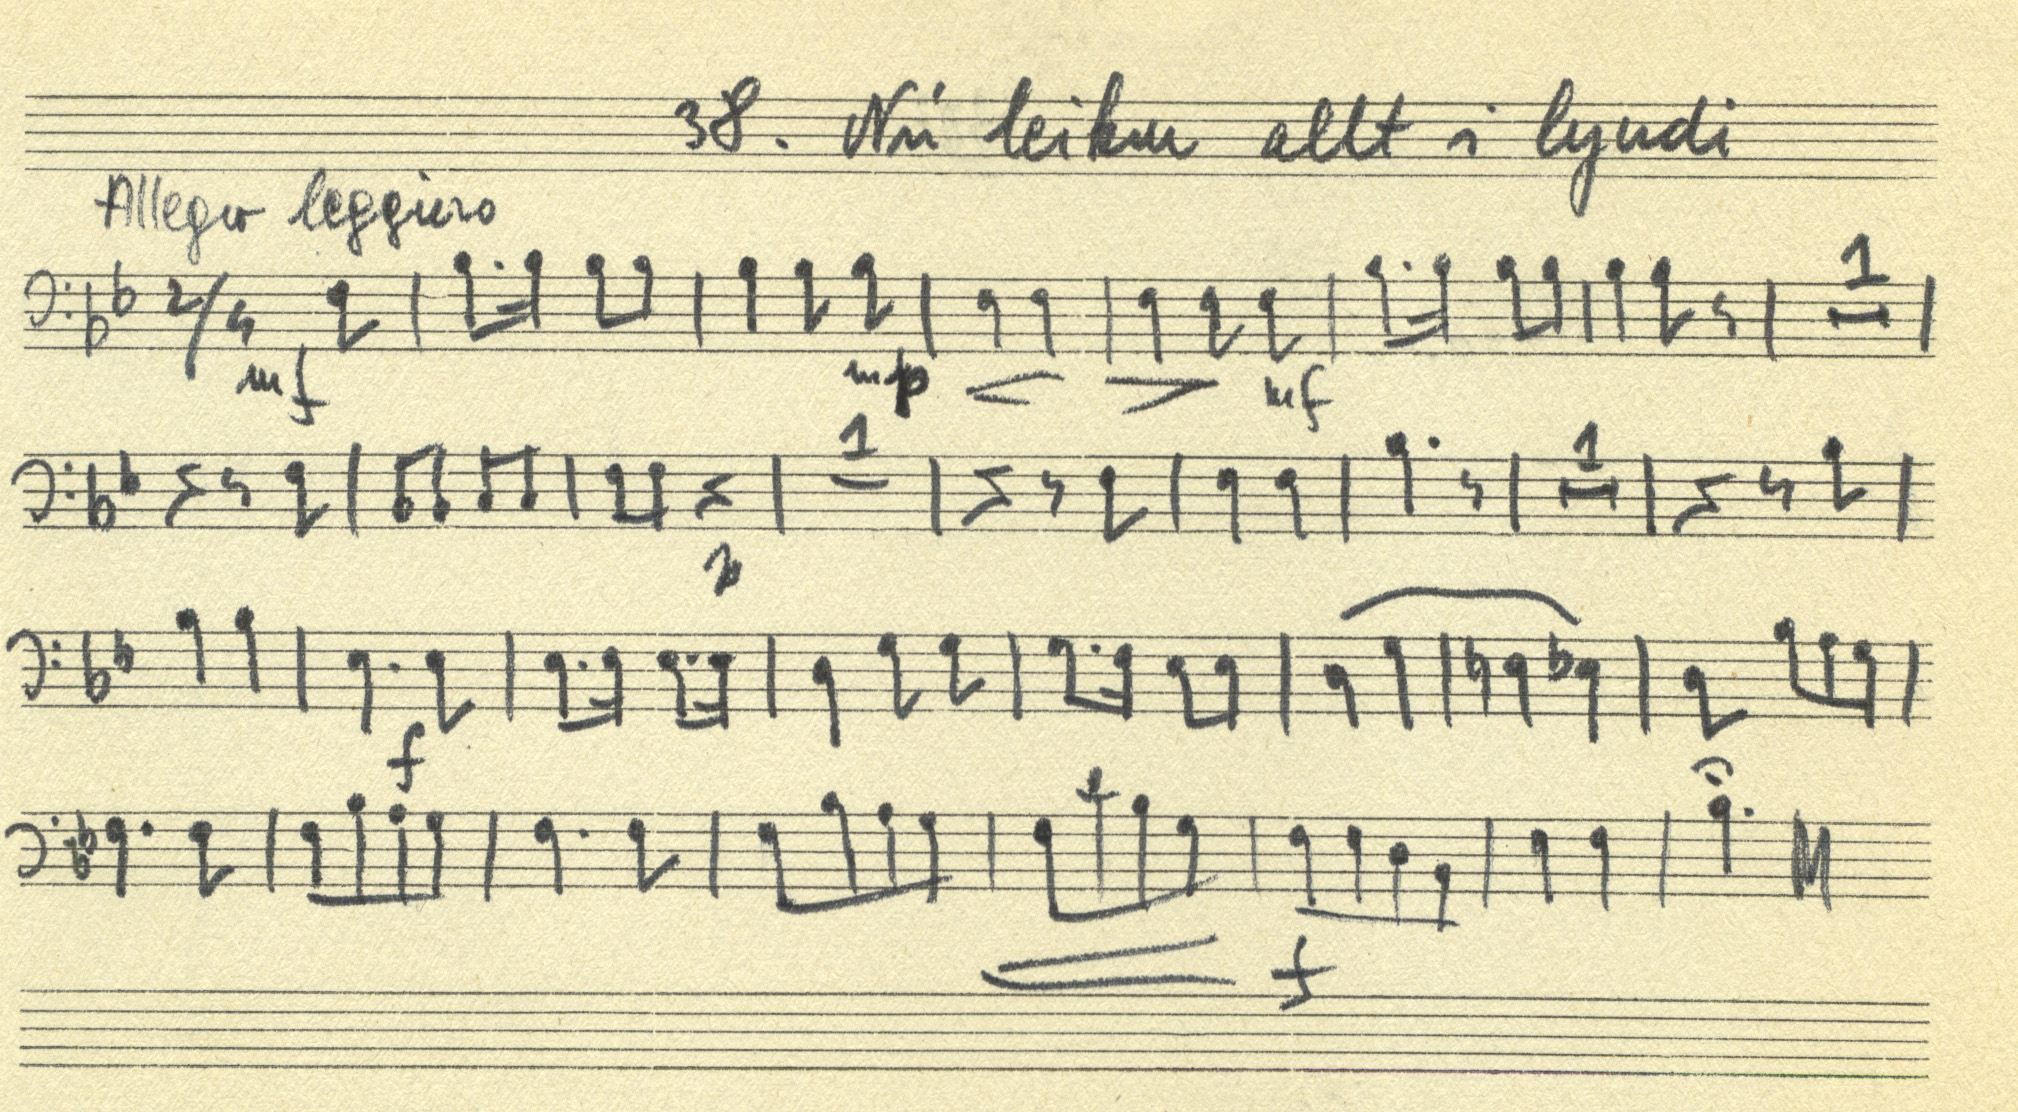 38. Nú leikur allt í lyndi
Allegro leggiero
2/4
1
mf mp mf
1 1
p
f
f